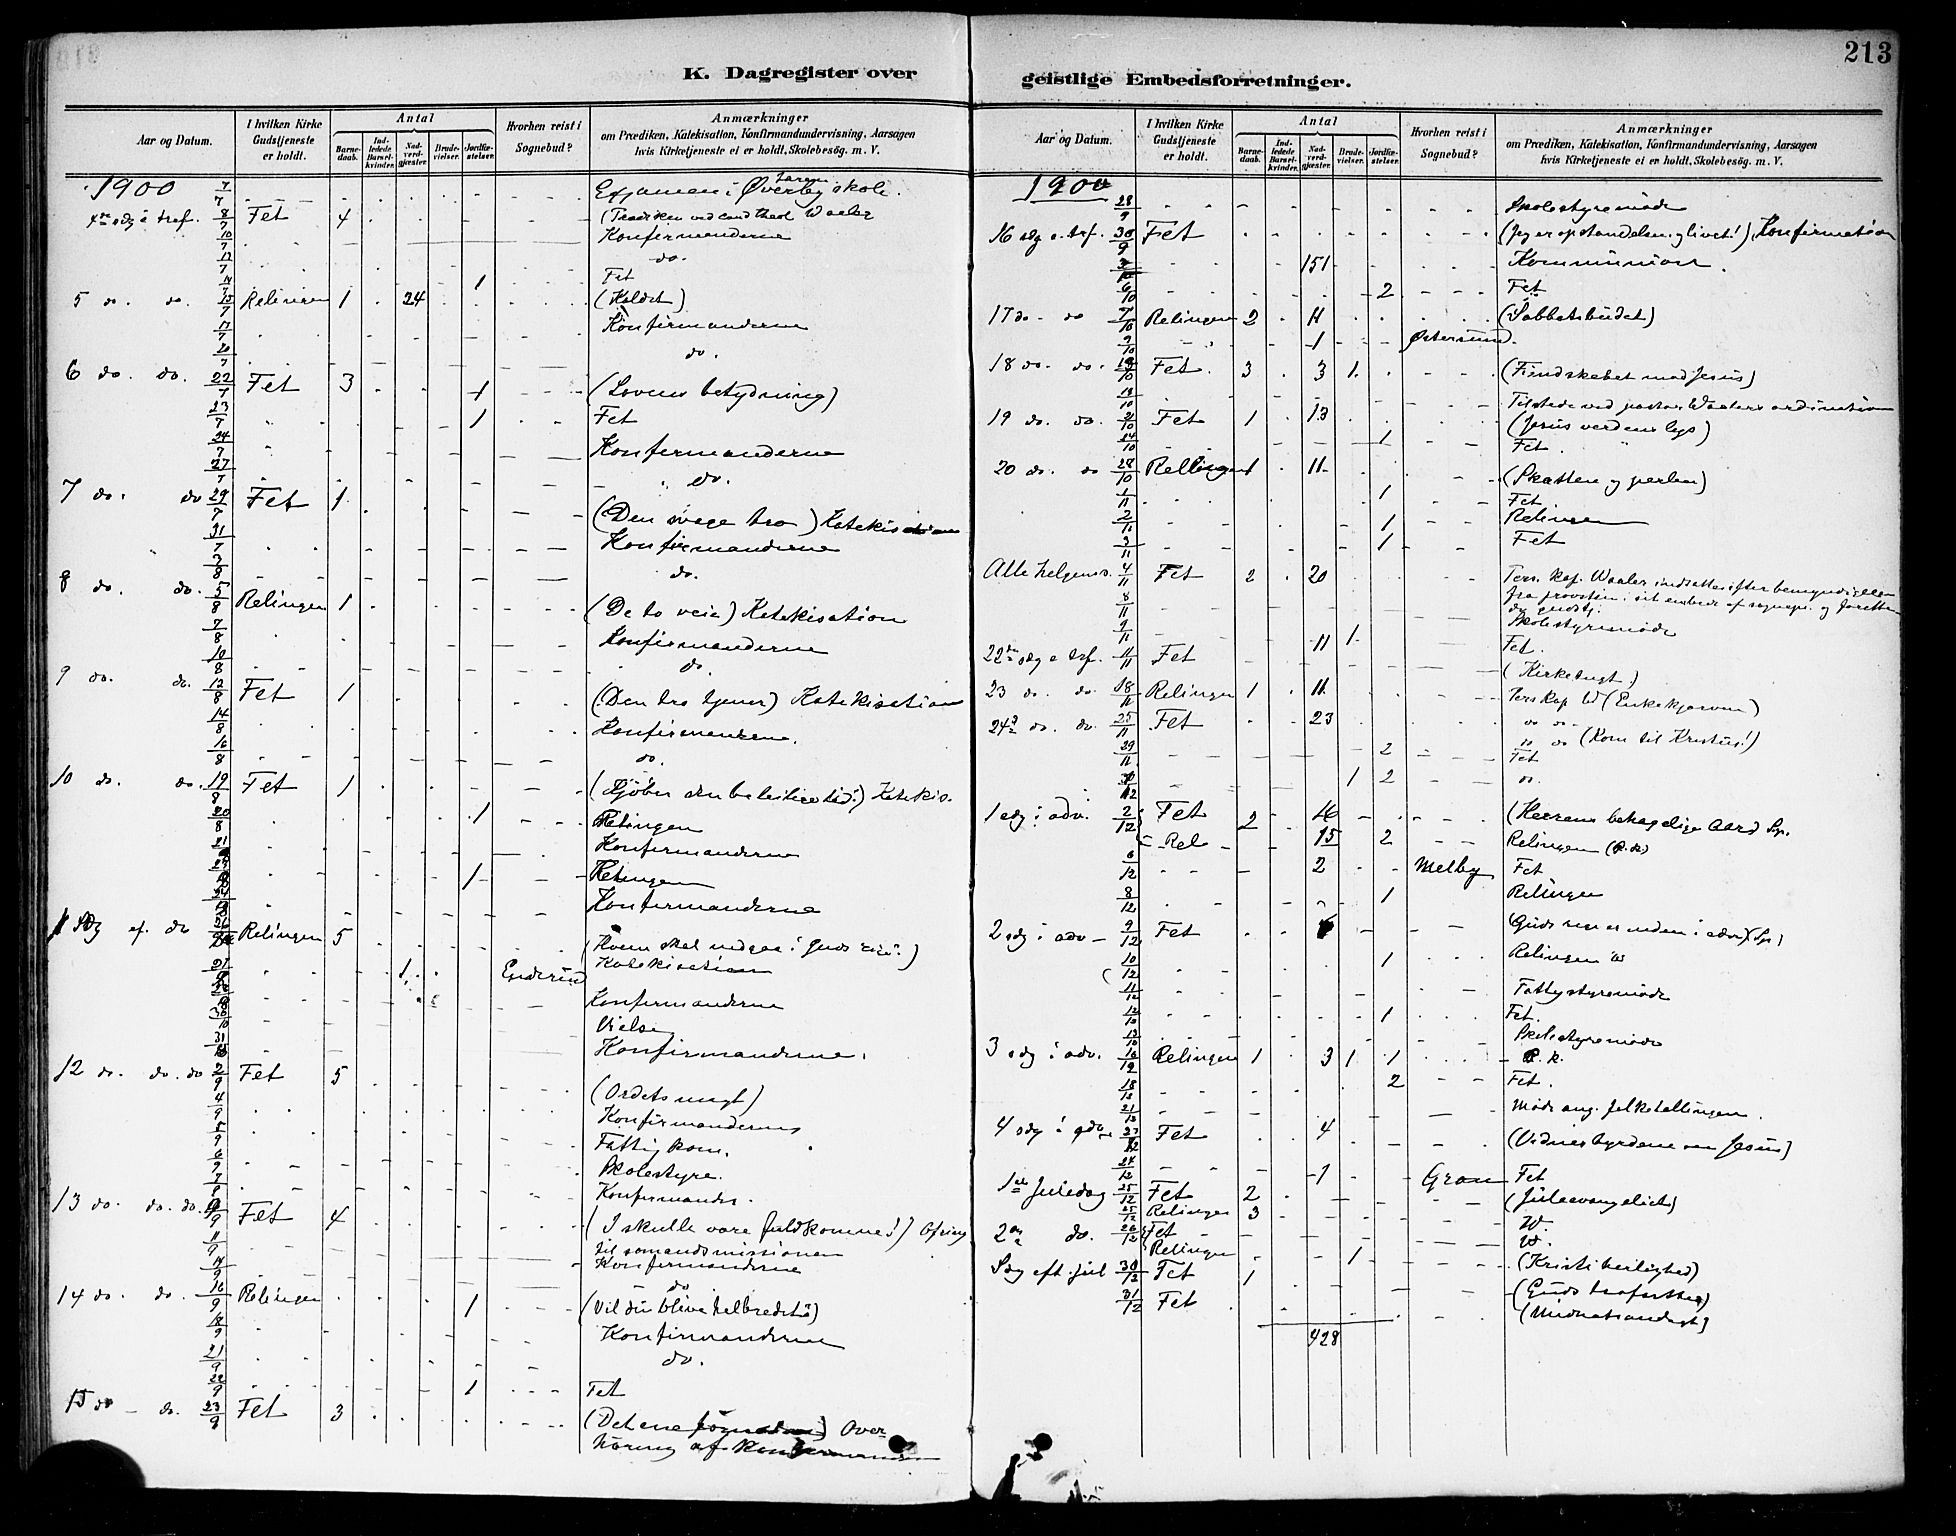 213
K. Dagregister over
Aar og Datum.
I hvilken Kirke Gudstjeneste er holdt.
Antal
Barne- daab.
Ind- ledede Barsel- kvinder.
Nad- verd- gjester.
Brude- vielser.
Jordfæ- stelser.
Hvorhen reist i Sognebud?
Anmærkninger
om Prædiken, Katekisation, Konfirmandundervisning, Aarsagen
hvis Kirketjeneste ei er holdt, Skolebesög. m. V.
1900 7/7 Exjamen i Øverby skole.
8/7 Fet 4 (Prædiken ved cand theol Waaler
10/7 Konfirmanderne
13/7 do.
14/7 1 Fet
5 do. do. 15/7 Relingen 1 24 (Kaldet)
17/7 Konfirmanderne
20/7 do.
6 do. do. 22/7 Fet 3 1 (Lovens betydning)
23/7 1 Fet
24/7 Konfirmanderne
27/7 do.
7 do. do 29/7 Fet 1 (Den svage tro) Katekisation
31/7 Konfirmanderne
3/8 do.
8 do. do. 5/8 Relingen 1 (De to veie) Katekisation
7/8 Konfirmanderne
10/8 do
9 do. do. 12/8 Fet 1 (Den tro tjener) Katekisation
14/8 Konfirmanderne.
16/8 do.
10 do. do. 19/8 Fet 1 (Kjöber den beleilige tid!) Katekis.
20/8 1 Relingen
21/8 Konfirmanderne
1 Relingen
24 Konfirmanderne
Relingen 5 (Hvem skal indgaa i Guds rige?)
1 Enderud Katekisation
Konfirmanderne
Vielse
31 Konfirmanderne.
12 do. do. do 2/9 Fet 5 (Ordets magt)
4/9 Konfirmanderne
5/9 Fattigkom.
6/9 Skolestyre.
7/9 Konfirmander.
13 do. do. do. 9/9 Fet 4 (I skulle være fuldkomne!) Ofring
11/9 til sømandsmissionen
Konfirmanderne
14/9 do
14 do. do. 16/9 Relingen 1 (Vil du blive helbredet?)
18/9 Konfirmanderne
21/9 do.
22/9 1 Fet
15 do do. 23/9 Fet 3 (Det ene fornødne) Over-
høring af konfirmander
geistlige Embedsforretninger.
Aar og Datum.
I hvilken Kirke Gudstjeneste er holdt.
Antal
Barne- daab.
Ind- ledede Barsel- kvinder.
Nad- verd- gjester.
Brude- vielser.
Jordfæ- stelser.
Hvorhen reist i Sognebud?
Anmærkninger
om Prædiken, Katekisation, Konfirmandundervisning, Aarsagen
hvis Kirketjeneste ei er holdt, Skolebesög. m. V.
1900
28/9 Skolestyremøde
16 sdg e. trf. 30/9 Fet (Jeg er opstandelsen og livet!) Konfirmation
151 Kommunion.
6/10 2 Fet
17 do do 7/10 Relingen 2 11 (Sabbatsbudet)
9/10 1 Østersund.
18 do. do. Fet. 3 3 1. (Fiendskabet mod Jesus)
Tilstede ved pastor Waalers ordination
19 do. do. 21/10 Fet 1 13 (Jesus verdens lys)
24/10 1 Fet.
20 do. do 28/10 Rellingen 1 11 (Skatten og perlen)
1/11 1 Fet
2/11 1 Relingen
3/11 1 Fet
Alle helgens. 4/11 Fet 2 20 Pers. Kap. Waaler indsattes efter bemyndigelse
fra provsten i sit embede af sognepr. og forrettede
8/11 Skolestyremøde
9/11 11 1. Fet.
22de sdg e trf. 11/11 Fet (Kirketugt.)
23 do. do. 18/11 Relingen 1 11. Pers Kap W (Enkekjærven)
24de do. do. 25/11 Fet 23 do do (Kom til Kristus!)
29/11 2 Fet
1 2 do.
1 sdg i adv. 2/12 Fet 2 46 (Herrens behagelige Aar
Rel 15 2 Relingen
6/12 2 Melby Fet
8/12 1 Relingen
2 sdg i adv 9/12 Fet
10/12 1 Relingen W
11/12 Fattigstyremøde
12/12 1 Fet.
13/12 Skolestyremøde
3 sdg i adv. 16/12 Relingen 1 3 1 1 P. k.
18/12 2 Fet.
21/12 Møde ang. folketællingen.
4 sdg i adv 23/12 Fet 4 (Vidnesbyrdene om Jesus)
24/12 1 Gran Fet
1ste Juledag 25/12 Fet 2 (Juleevangeliet)
25/12 Relingen 3 W.
2den do. 26/12 Fet W.
Relingen 1 (Kristi herlighed)
Sdg eft. jul 30/12 Fet 1 (Guds trofasthed)
31/12 Fet (Midnatsandagt)
428